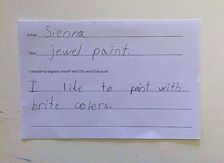 Artist Sienna
Title jewel paint.
I choose to express myself with this work because:
I like to paint with
brite colers.